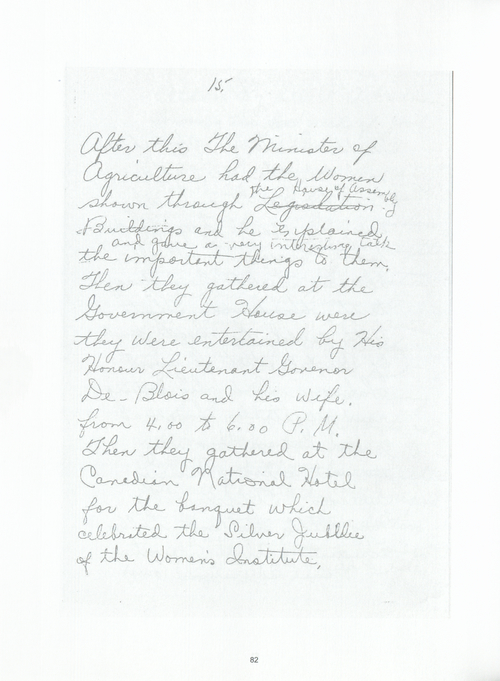 15.
After this The Minister of
Agriculture had the Women
the House of Assembly
shown through Legislation
Buildings and he explained
and gave a very interesting talk
the important things to them.
Then they gathered at the
Government House were
they were entertained by His
Honour Lieutenant Govenor
De-Blois and his wife.
from 4.00 to 6.00 P.M.
Then they gathered at the
Canadian National Hotel
for the banquet which
celebrated the Silver Jubblie
of the Women's Institute,
82